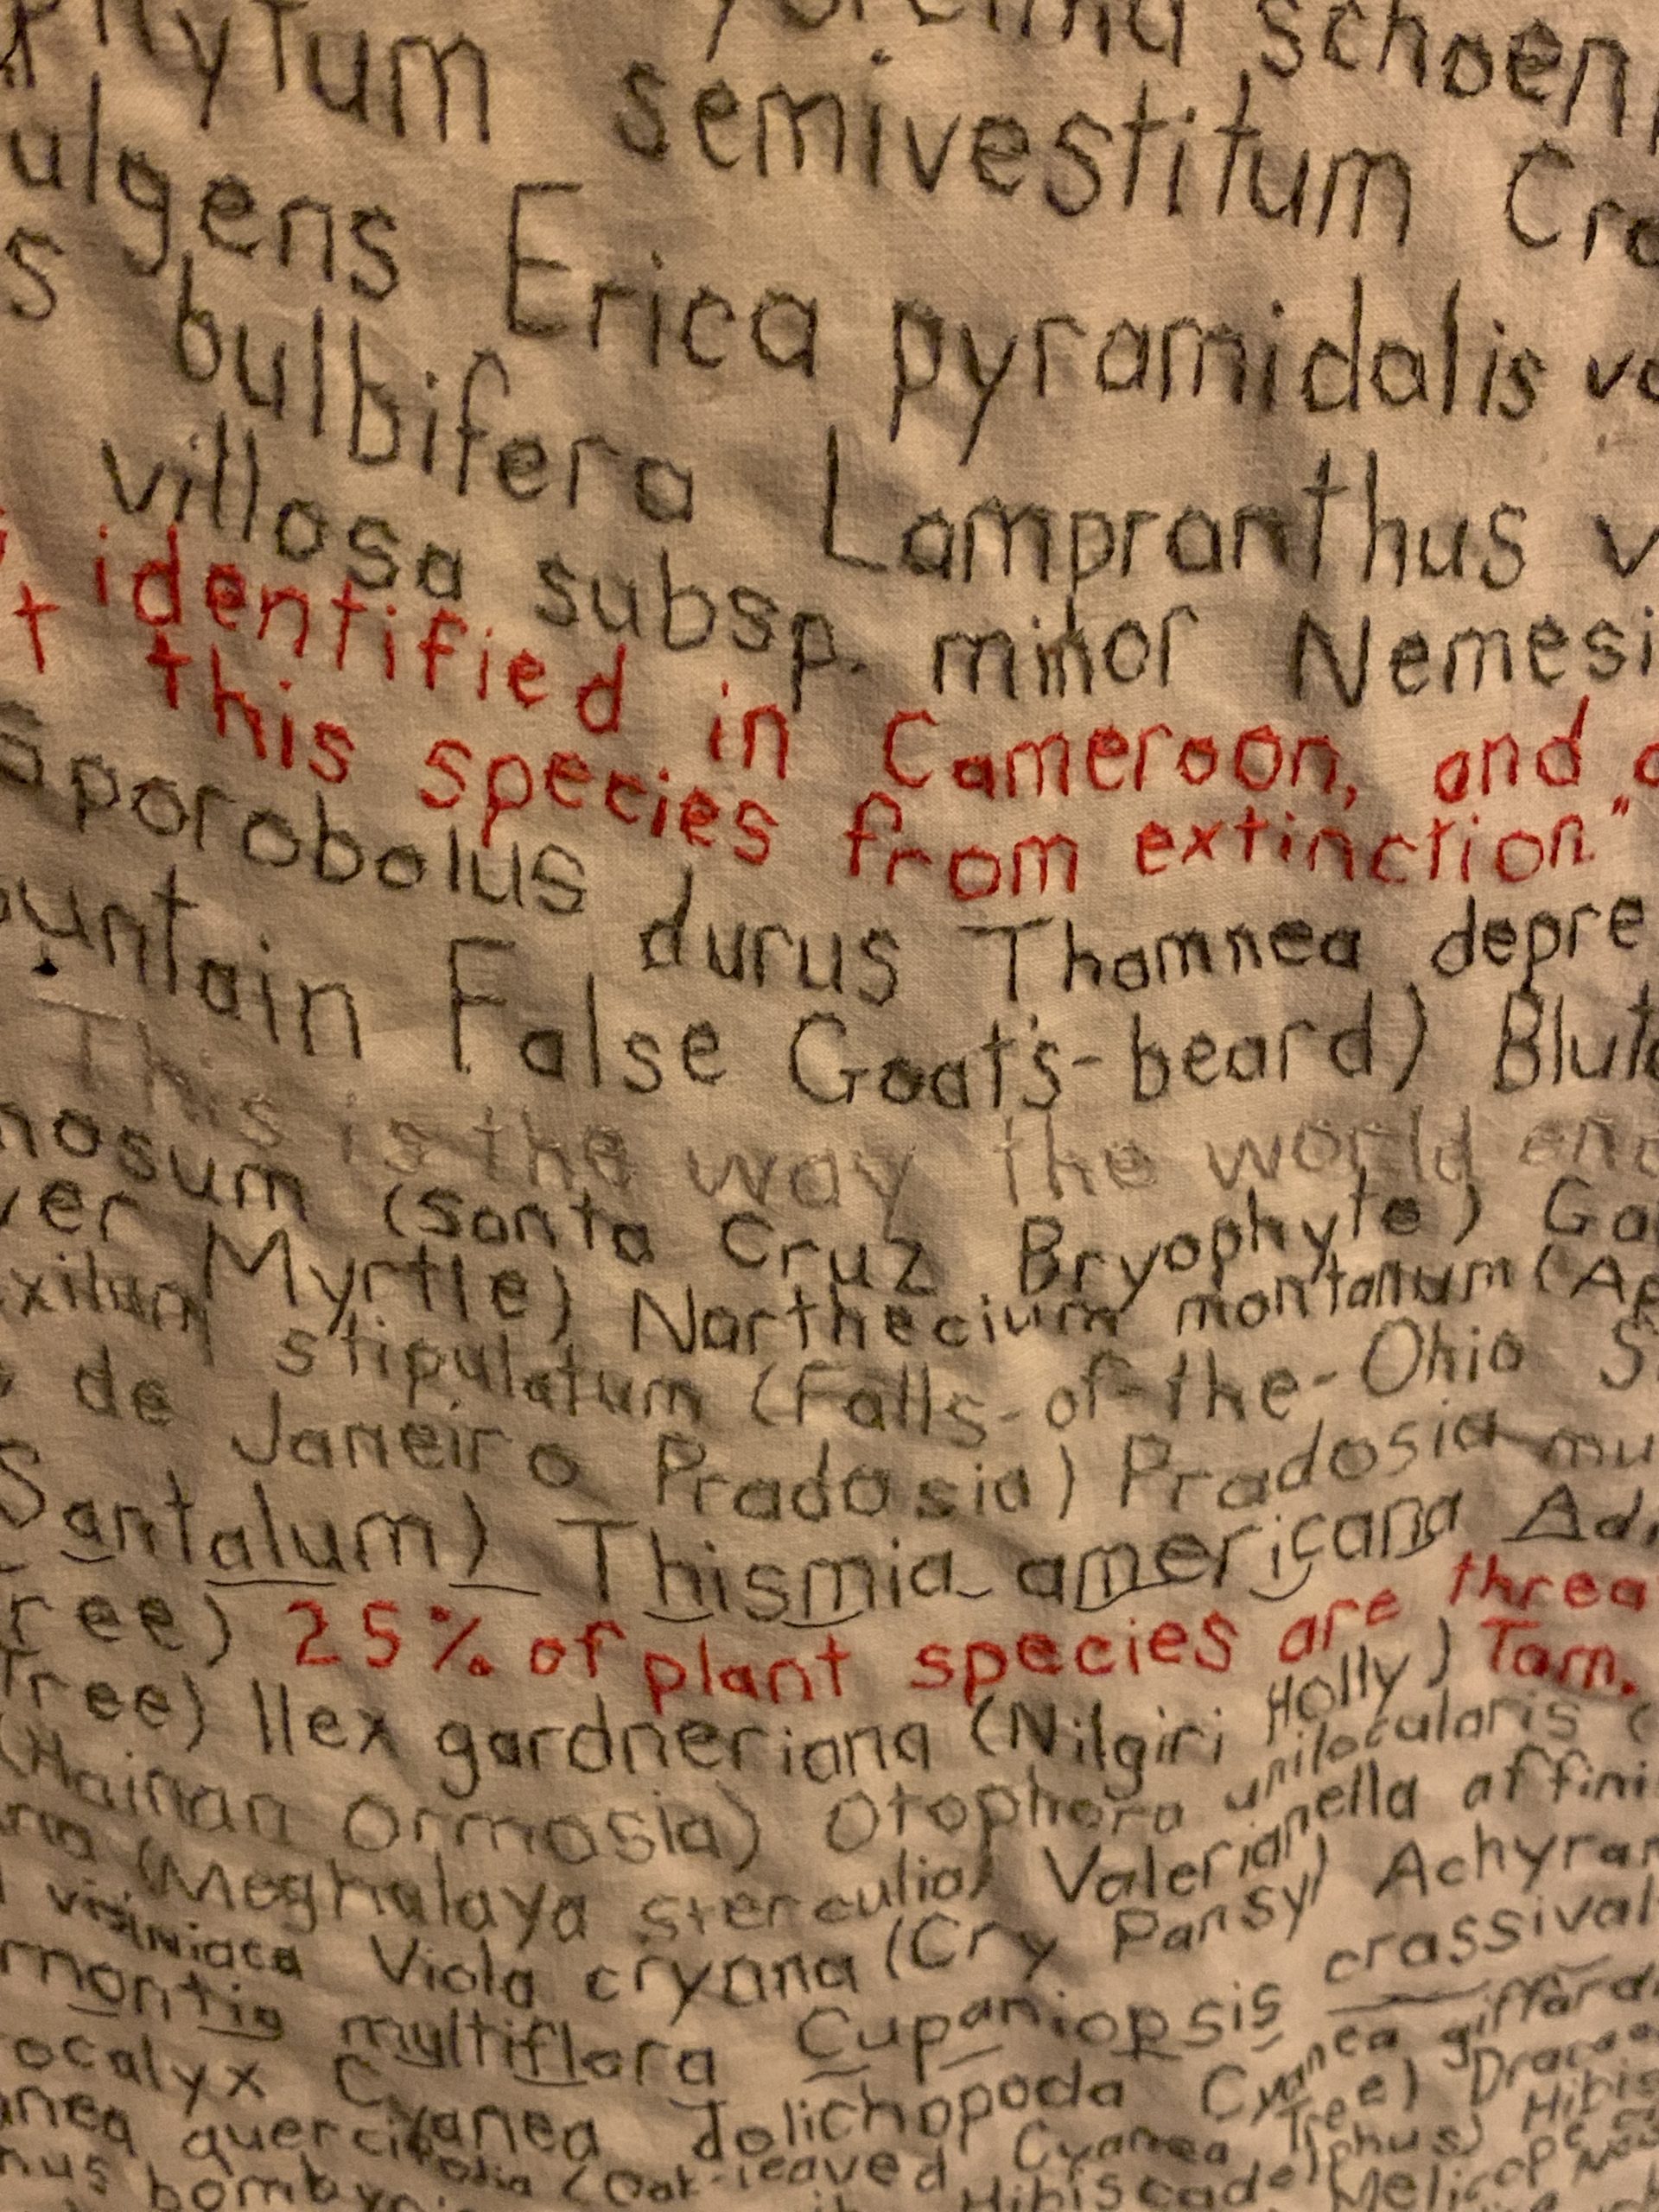 schoen
semivestitum Cr
ulgens Erica pyramidalis
s bulbifera Lampranthus v
villosa subsp. minor Nemesi
identified in Cameroon, and
t this species from extinction."
Sporobolus durus Thamnea depre
ountain False Goat's-beard) Blut
This is the way the world en
nosum (Santa Cruz Bryophyte) Ga
ver Myrtle) Narthecium montanum (Ap
xilum stipulatum (Falls-of-the-Ohio S
de Janeiro Pradosia) Pradosia mu
Santalum) Thismia americana Ad
ree) 25% of plant species are threa
Tree) Ilex gardneriana (Nilgiri Holly) Tam.
(Hainan Ormosia) Otophora unilocularis (
(Meghalaya sterculia) Valerianella affini
Viola cryana (Cry Pansy) Achyran
montia multiflora Cupaniopsis crassival
ocalyx Cyanea dolichopoda Cyanea giffard
anea quercifolia (Oak-leaved Cyanea Tree) Dracae
nus